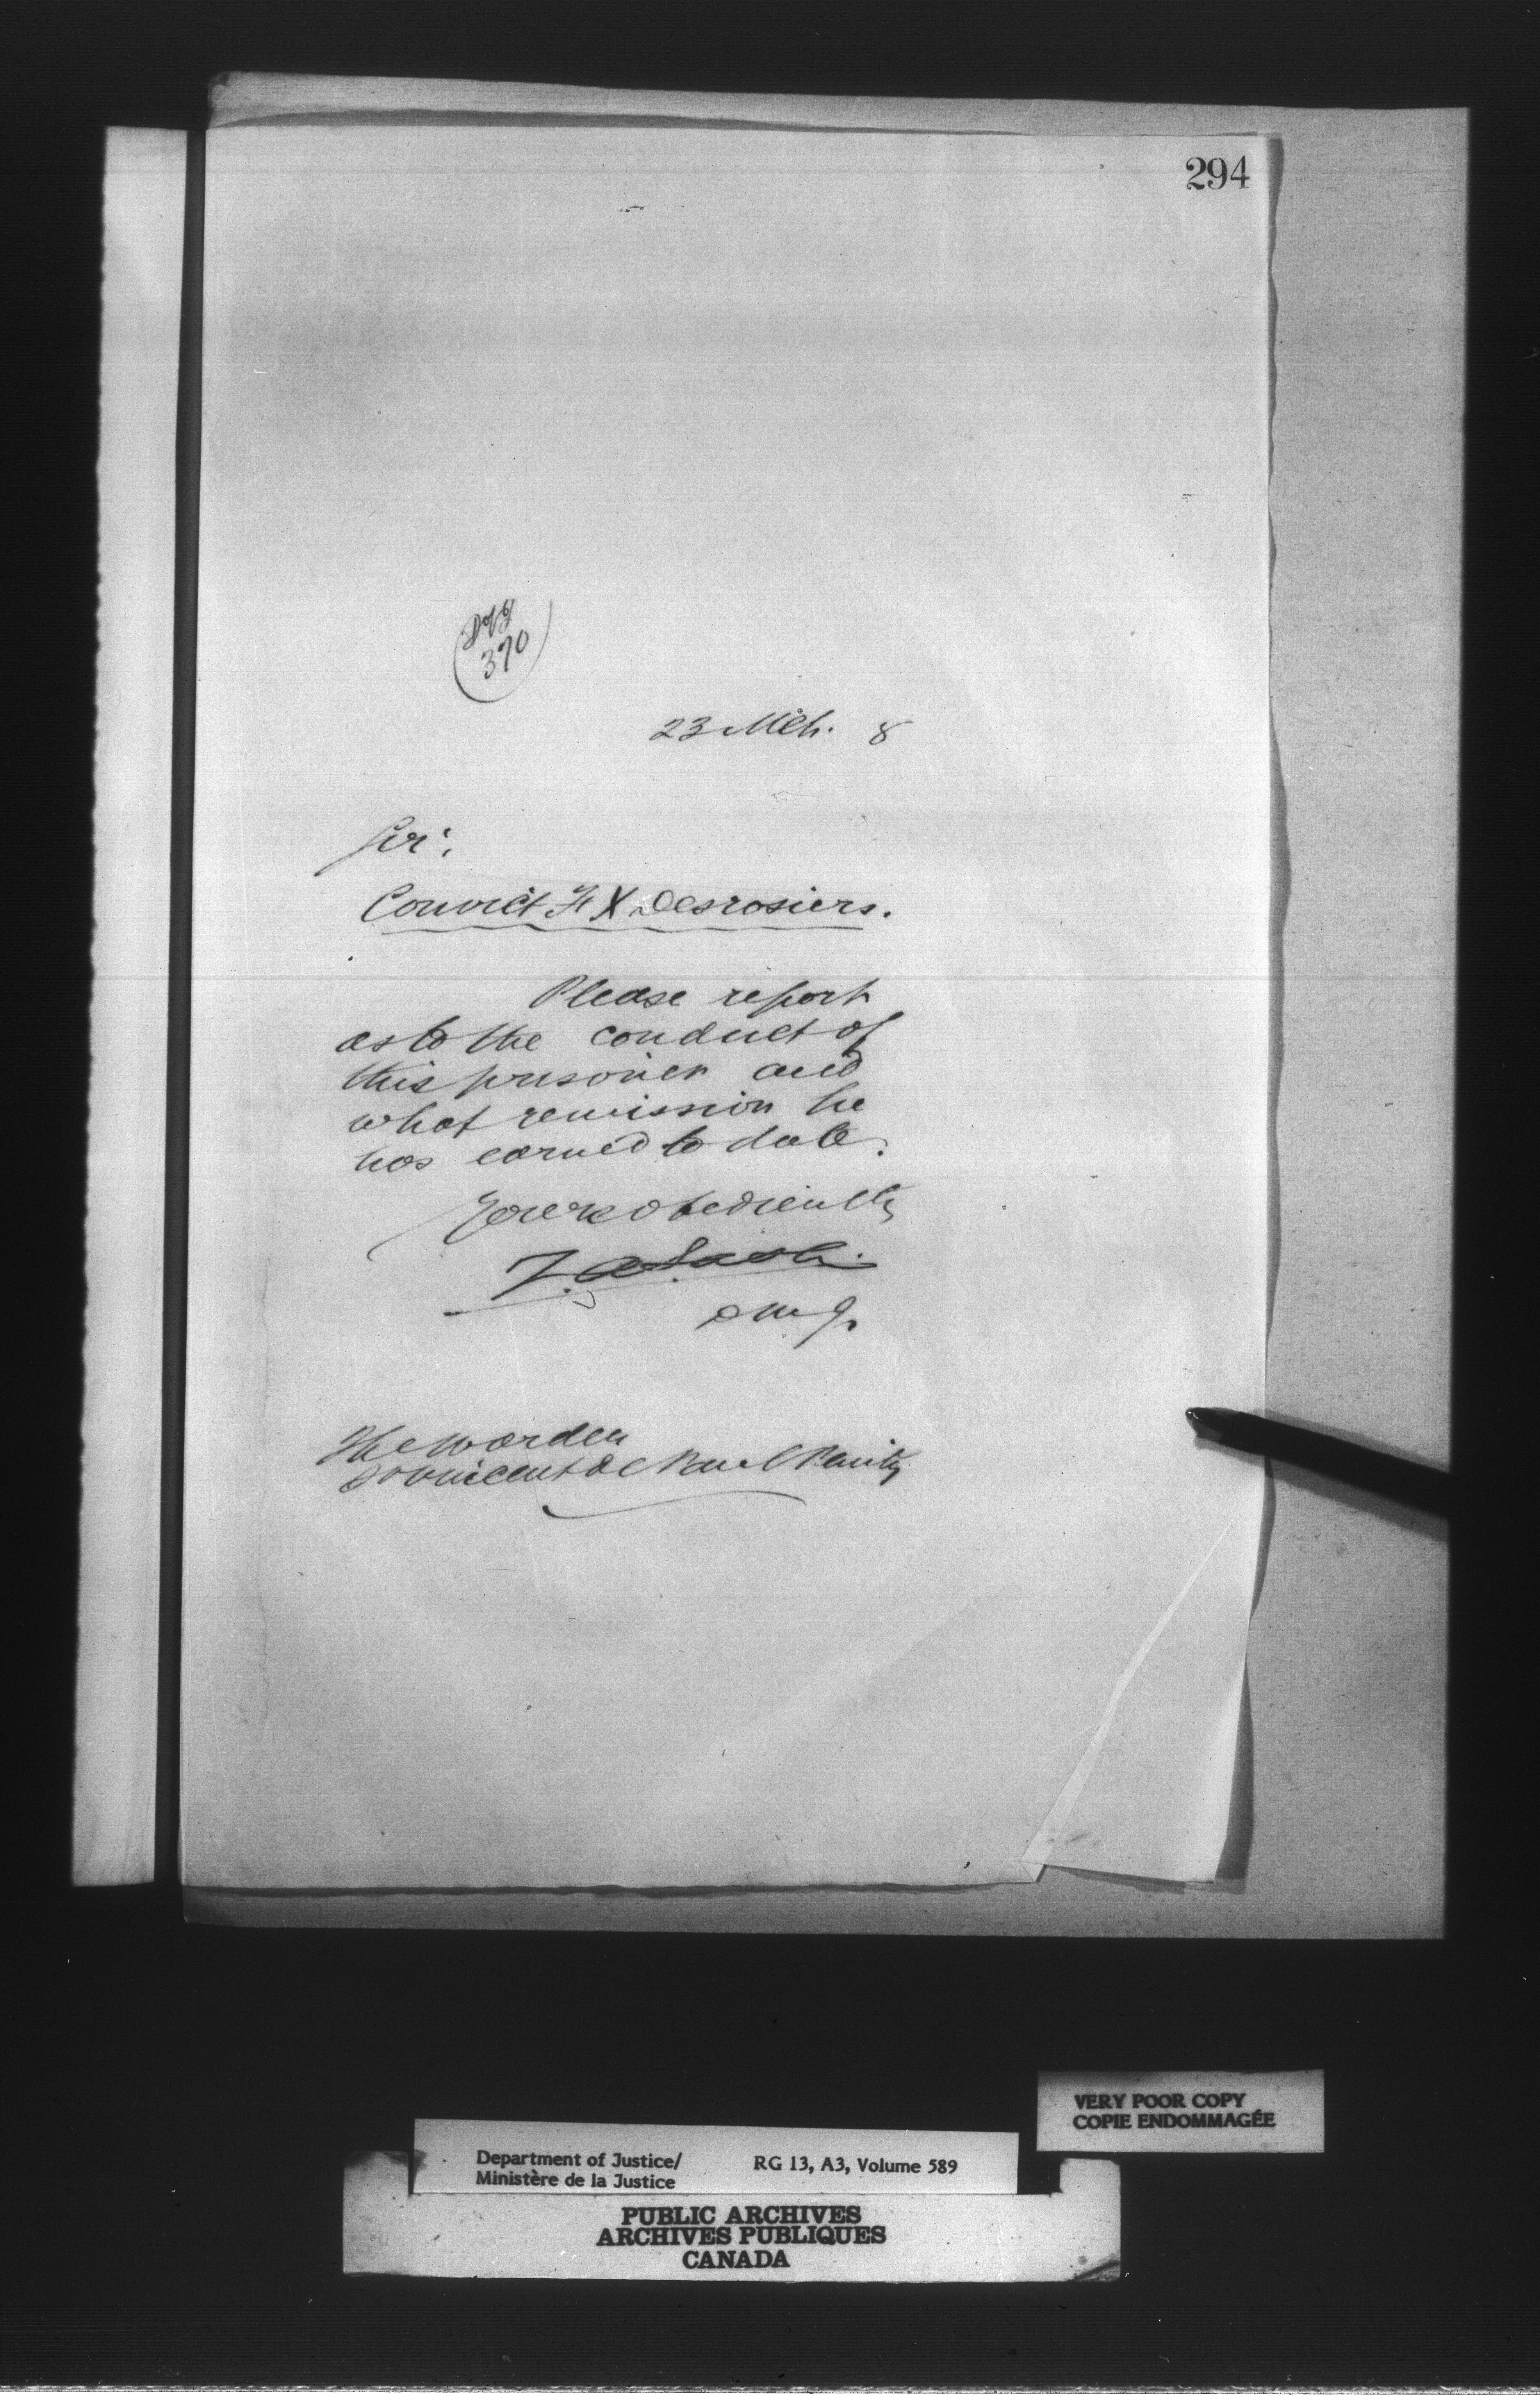 294
370
23 Mch. 8
Sir:
Convict F. X. Desrosiers.
Please report
as to the conduct of
this prisoner and
what remission he
has earned to date.
Yours obediently
Z. A. Lash.
DMJ.
The Warden
St Vincent de Paul Penity
VERY POOR COPY
COPIE ENDOMMAGÉE
Department of Justice/ RG 13, A3, Volume 589
Ministère de la Justice
PUBLIC ARCHIVES
ARCHIVES PUBLIQUES
CANADA